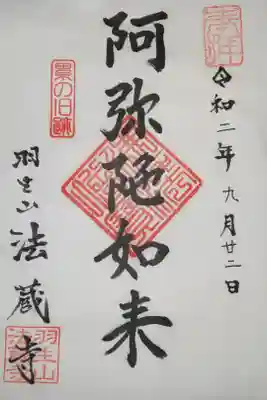 奉拝
令和二年九月廿二日
阿弥陀如来
累の旧跡
羽生山法蔵寺
羽生山
法蔵寺